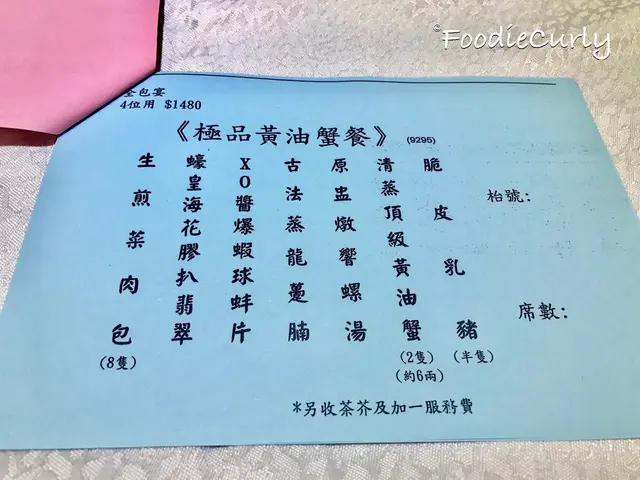 FoodieCurly
全包宴
4位用 $1480
《極品黃油蟹餐》 (9295)
脆皮乳豬
(半隻)
清蒸頂級黃油蟹
(2隻)
(約6兩)
原盅燉響螺湯
古法蒸龍躉腩
XO醬爆蝦球蚌片
蠔皇海花膠扒翡翠
生煎菜肉包
(8隻)
枱號:
席數:
*另收茶芥及加一服務費